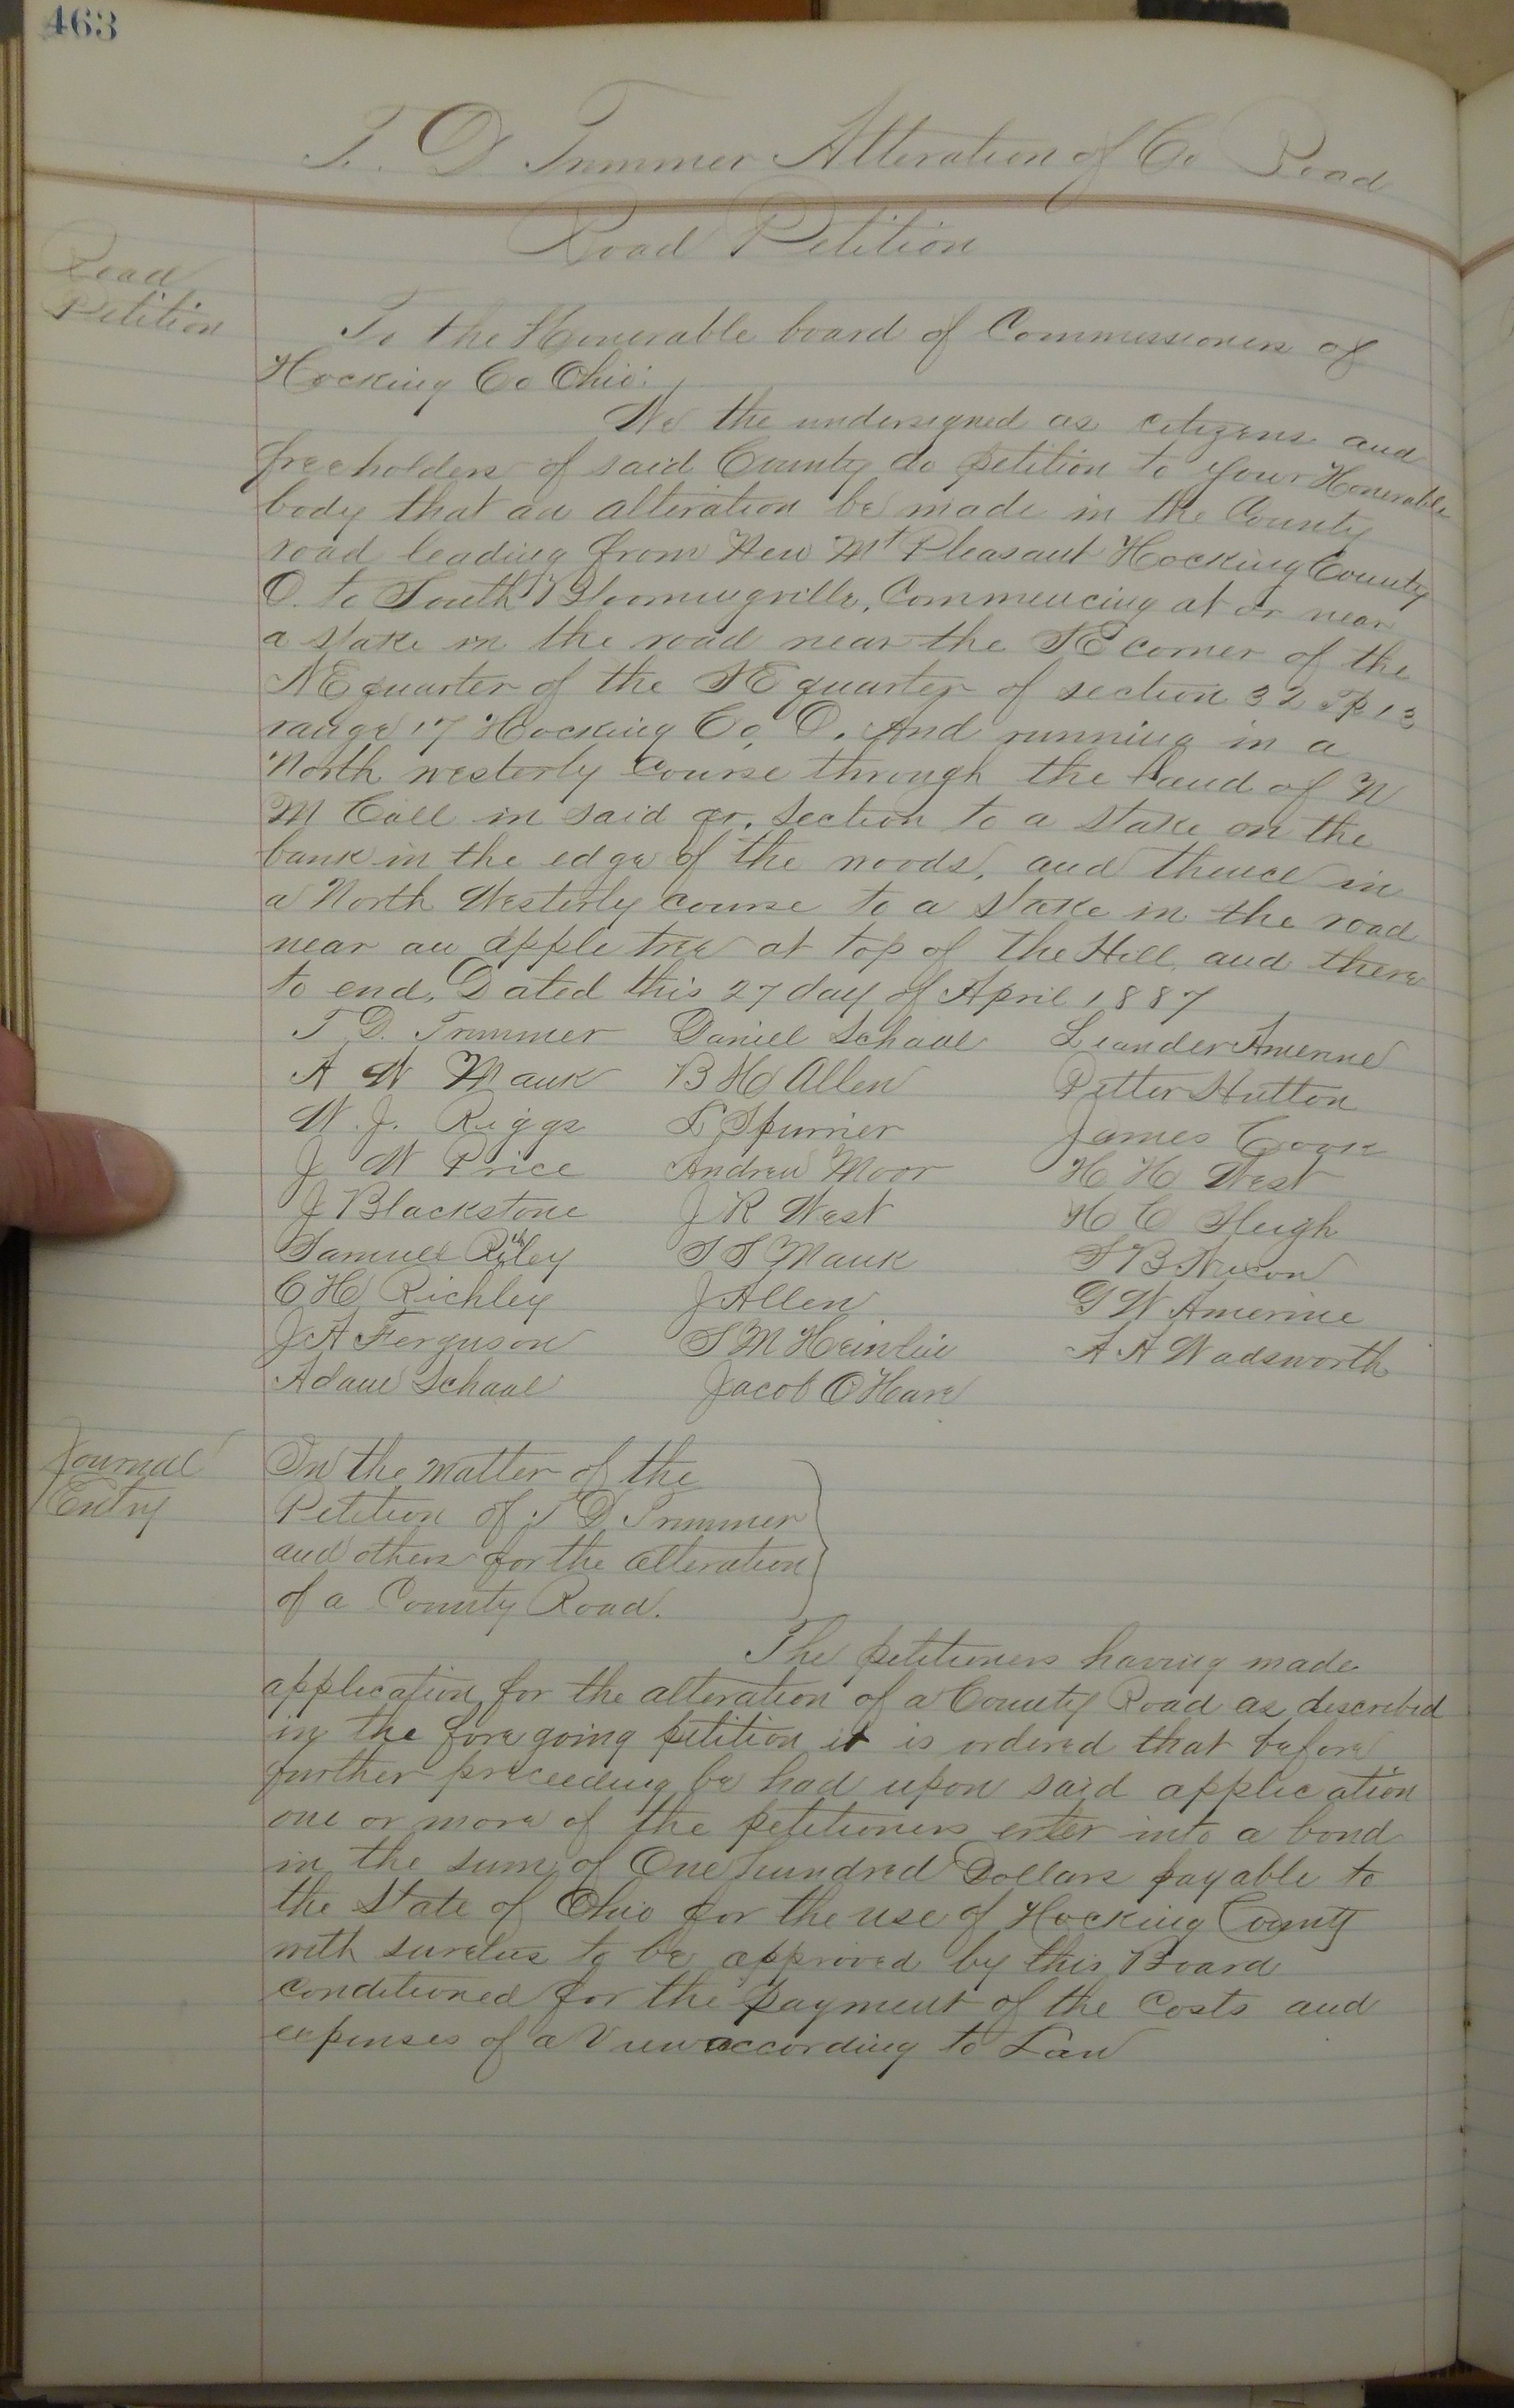 463
T. D Trimmer Alteration of Co Road
Road Petition
Road
Petition
To the Honerable board of Commissioners of
Hocking Co Ohio:
We the undersigned as citizens and
freeholders of said County do petition to your Honerable
body that an alteration be made in the County
road leading from New Mt Pleasant Hocking County
O. to South Bloomingville, Commencing at or near
a stake in the road near the SE corner of the
NE quarter of the SE quarter of section 32 Tp 13
range 17 Hocking Co, O. And running in a
North westerly course through the land of W
M Call in said qr. Section to a stake on the
bank in the edge of the woods, and thence in
a North Westerly course to a stake in the road
near an apple tree at top of the Hill, and there
to end. Dated this 27 day of April 1887
T D. Trimmer Daniel Schaal Leander Amerine
A W Mauk B H Allen Petter Hutton
W. J. Riggs L Spurrier James Cook
J W Price Andrew Moor H H West
J Blackstone J R West H C Heigh
Samuel Riley S S Mauk S B Nixon
C H Richley J Allen G W Amerine
J A Ferguson S M Heinlie A A Wadsworth
Adam Schaal Jacob O Hare
Journal
Entry
In the matter of the
Petition of T D Trimmer
and others for the alteration
of a County Road.
The petitioners having made
application for the alteration of a County Road as described
in the fore going petition it is ordered that before
further preceeding be had upon said application
one or more of the petitioners enter into a bond
in the sum of One hundred Dollars payable to
the State of Ohio for the use of Hocking County
with sureties to be approved by this Board
conditioned for the payment of the Costs and
expenses of a View according to Law